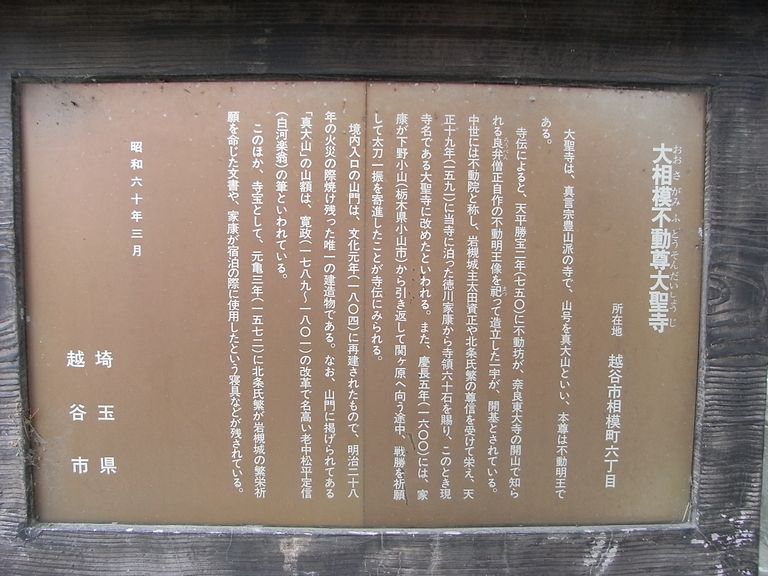 大相模不動尊大聖寺
おおさがみふどうそんだいしょうじ
所在地　越谷市相模町六丁目
大聖寺は、真言宗豊山派の寺で、山号を真大山といい、本尊は不動明王で
ある。
寺伝によると、天平勝宝二年(七五〇)に不動坊が、奈良東大寺の開山で知ら
れる良弁僧正自作の不動明王像を祀って造立した一宇が、開基とされている。
ろうべん
まつ
中世には不動院と称し、岩槻城主太田資正や北条氏繁の尊信を受けて栄え、天
正十九年(一五九一)に当寺に泊った徳川家康から寺領六十石を賜り、このとき現
寺名である大聖寺に改めたといわれる。また、慶長五年(一六〇〇)には、家
康が下野小山(栃木県小山市)から引き返して関ヶ原へ向う途中、戦勝を祈願
して太刀一振を寄進したことが寺伝にみられる。
境内入口の山門は、文化元年(一八〇四)に再建されたもので、明治二十八
年の火災の際焼け残った唯一の建造物である。なお、山門に掲げられてある
「真大山」の山額は、寛政(一七八九〜一八〇一)の改革で名高い老中松平定信
(白河楽翁)の筆といわれている。
このほか、寺宝として、元亀三年(一五七二)に北条氏繁が岩槻城の繁栄祈
願を命じた文書や、家康が宿泊の際に使用したという寝具などが残されている。
昭和六十年三月
埼玉県
越谷市